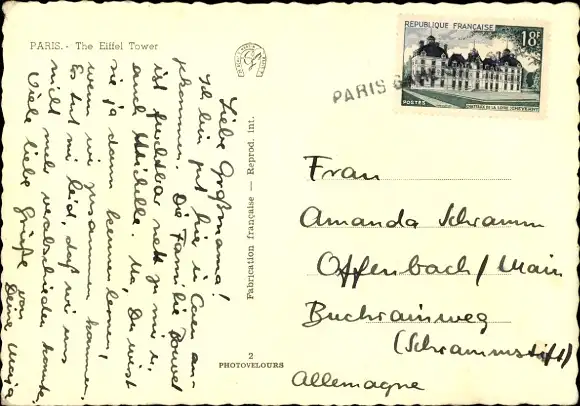 PARIS. - The Eiffel Tower
Liebe Großmama!
Ich bin gut hier in Caen an-
gekommen. Die Familie
ist furchtbar nett zu mir u.
auch Michelle. Na, Du wirst
sie ja dann kennenlernen,
wenn wir zusammen kommen.
Es tut mir leid, daß wir uns
nicht mehr verabschieden konnten.
Viele liebe Grüße von
Deine Maja
Fabrication française — Reprod. Int.
2
PHOTOVELOURS
REPUBLIQUE FRANÇAISE
18F
POSTES
CHATEAUX DE LA LOIRE (CHEVERNY)
PARIS
Frau
Amanda Schramm
Offenbach/Main
Buchrainweg
(Schrammstift)
Allemagne